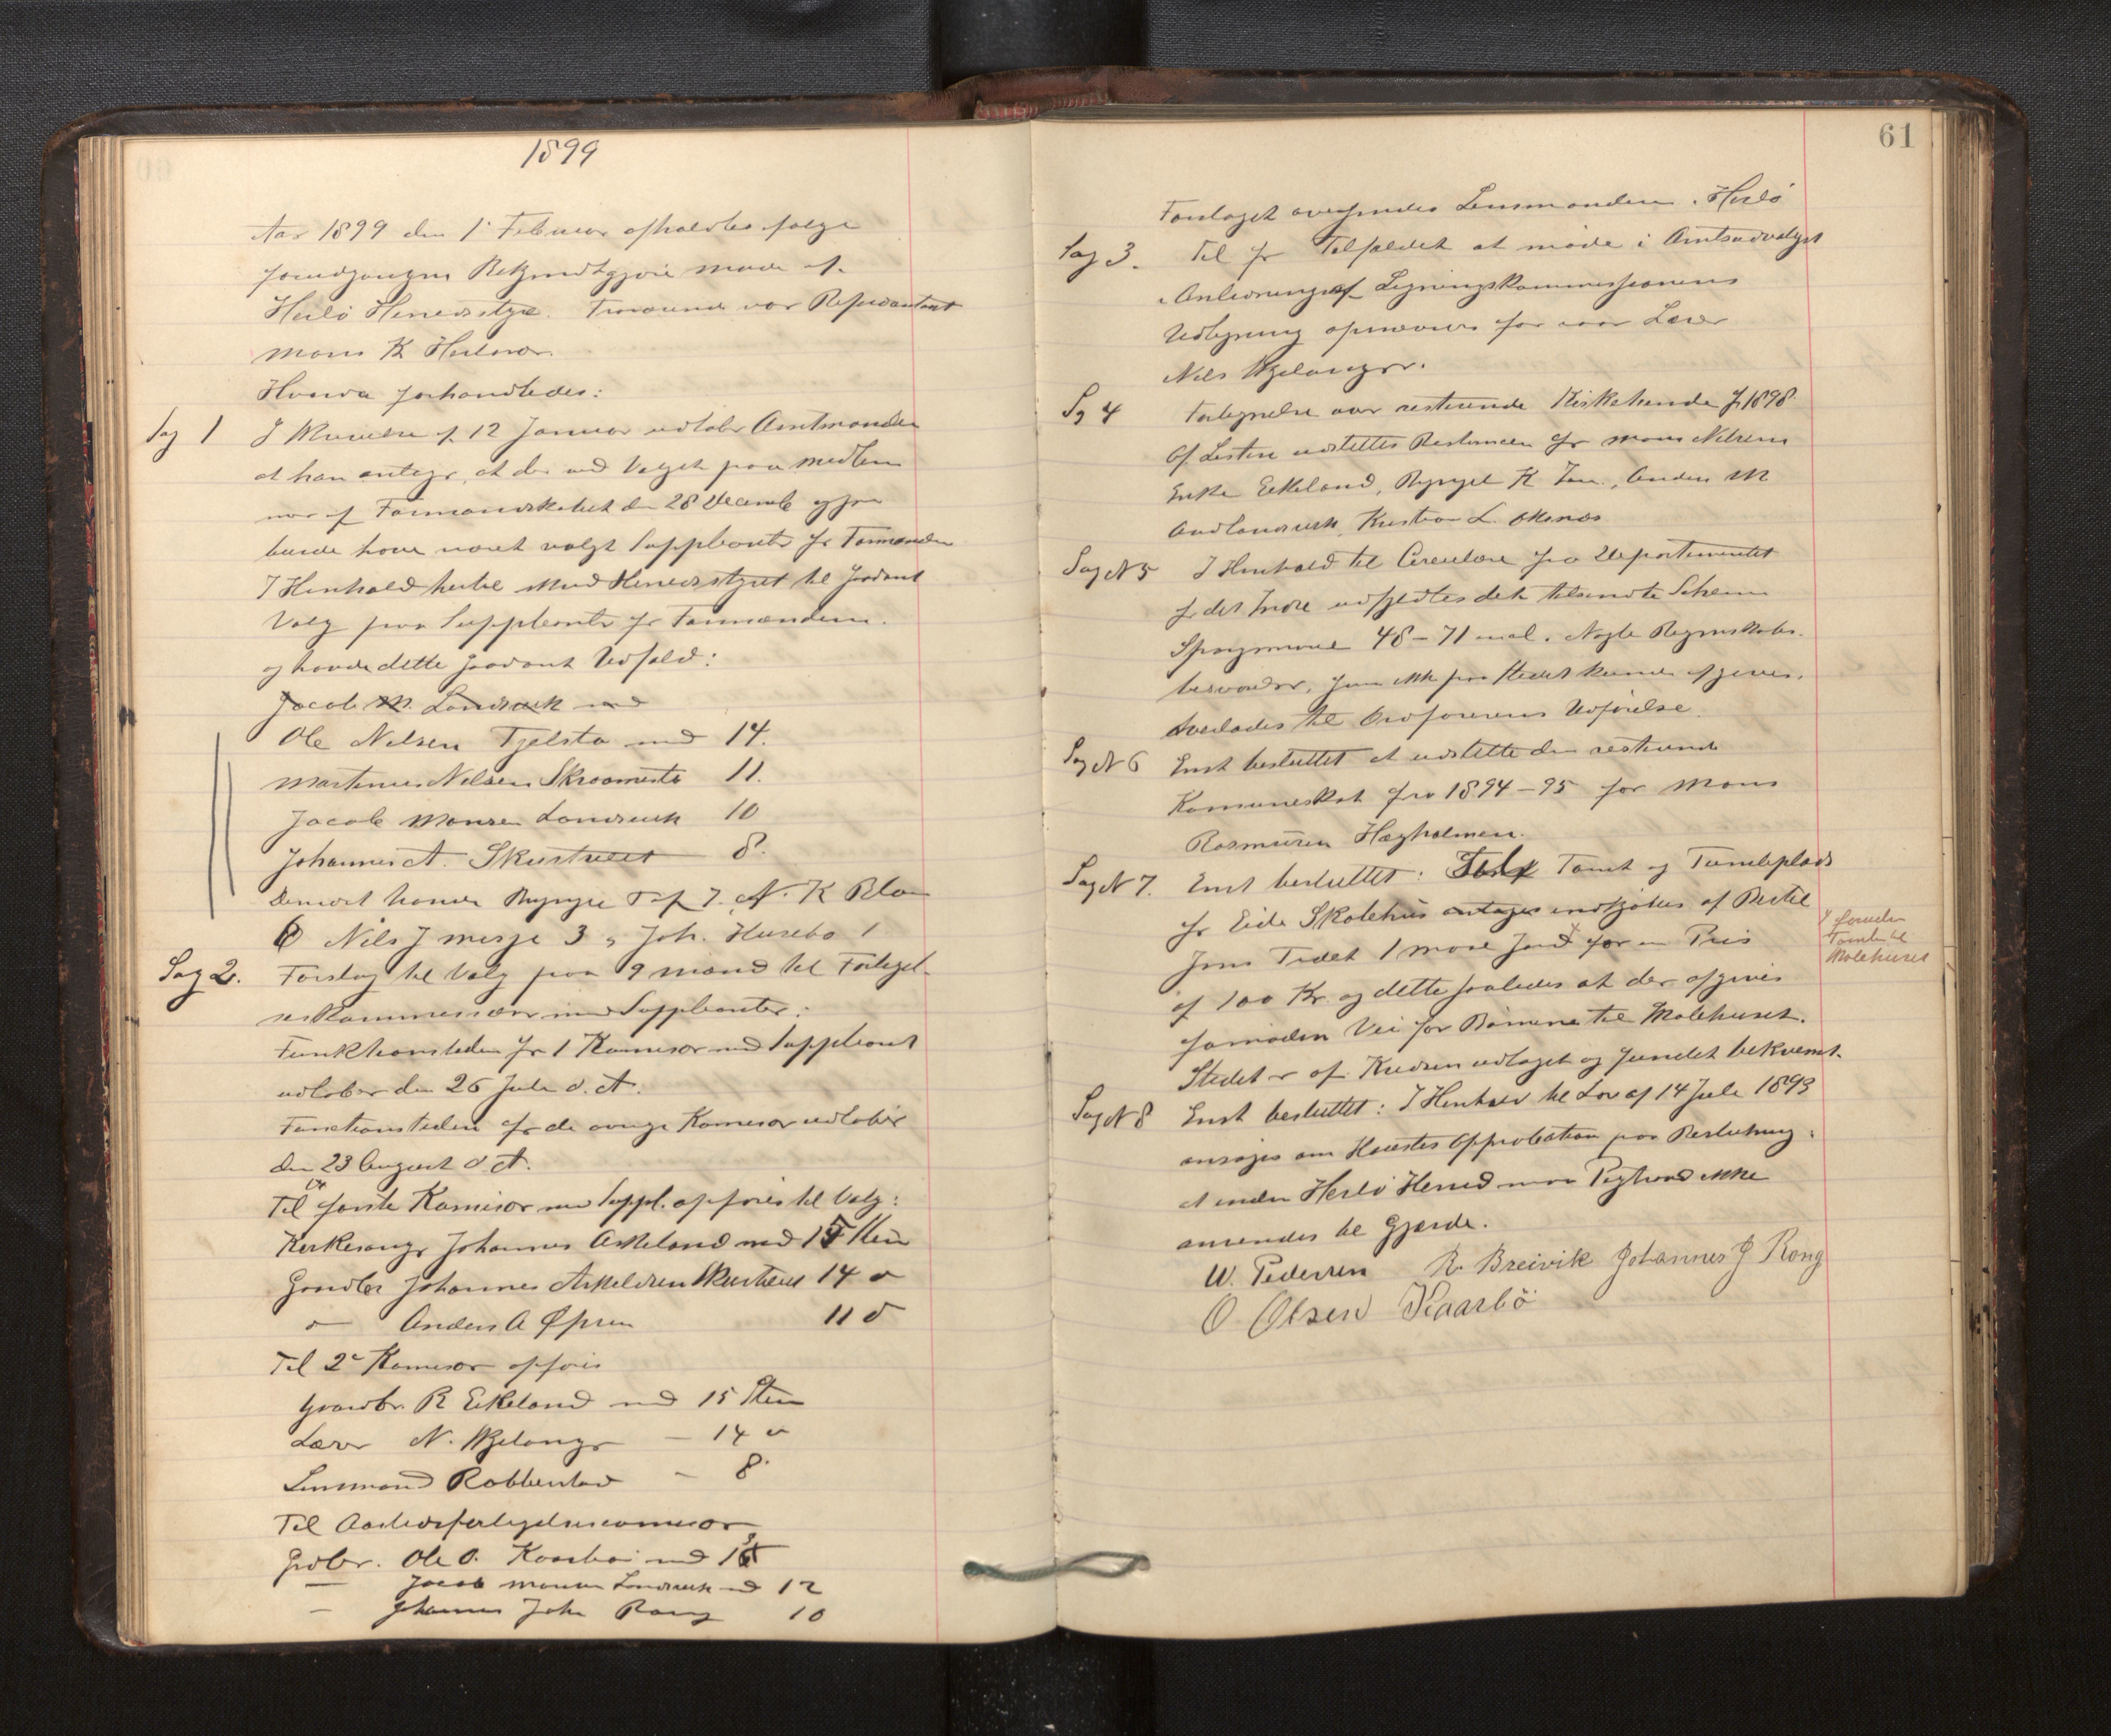 1899
Aar 1899 den 1 Februar afholdtes følge
foredgangen Bekjendtgjøre møde af
Herlø Herredsstyre. Fraværende var Repræsentant
Mons K Herlevær.
Hvorda forhandledes:
Sag 1 I Skrivelse af 12 Januar udtaler Amtmanden
at han antager, at der ved Valget paa Medlem
mer af Formandskabet den 28 Decemb
burde have været valgt Suppleanter for Formænden
I Henhold hertil skred Herredsstyret til saadant
Valg paa Suppleanter for Formændene.
og havde dette saadant Udfald:
Jacob M. Landsvik med
Ole Nelsen Tjelsto med 14.
Martinus Nelsen Skraamestø 11.
Jacob Monsen Landsvik 10
Johannes A. Skurtveit 8.
Dernæst havde 7. N. K Blom
6 Nils J Misje 3, Joh. Husebø 1
Sag 2. Forslag til Valg paa 9 Mænd til Forligel
seskommissærer med Suppleanter:
Funktionstiden for 1 Komisær med Suppleant
udløber den 26 Juli d. A.
Functionstiden for de øvrige Komisær udløber
den 23 August d A.
Til første Komisær med Suppl. opføres til Valg:
Kirkesanger Johannes Askeland med 15 Stem
Gaardbr Johannes Askeldsen Skurtveit 14 "
" Anders A Øpsen 11 "
Til 2 Komisær opføres
Gaardbr. R Eikeland med 15 Stem
Lærer N. Kjelanger – 14 "
Lensmand Rabbenstad – 8.
Til Aastedsforligelsescomisær
Grdbr. Ole O. Kaarbø med
– Jacob Monsen Landsvik med 12
– Johannes Johs Rong 10
61
Forslaget oversendes Lensmanden i Herlø
Sag 3. Til for Tilfældet at møde i Amtsudvalget
i Anledning af Ligningskommissionens
Udligning opnævnes for vor Lærer
Nils Kjelanger.
Sg 4 Fortegnelse over resterende Kirketiende f 1898.
Af Listen udslettes Restancen for Mons Nilsens
Enke Eikeland, K , Anders M
Andlandsvik, Kristian L. Oksnes
Sag N 5 I Henhold til Circulære fra Departementet
for det Indre udfyldtes det tilsendte Schema
Spørgsmaal 48 – 71 incl. Nogle Regnskabs
besvarelser, som ikke paa Stedet kunde afgives,
overlades til Ordførerens Udførelse.
Sag N 6 Enst besluttet at udslette den resterende
Komuneskat fra 1894 – 95 for Mons
Rasmusen Hægholmen.
Sag N 7. Enst besluttet: Tomt og Tumleplads
for Eide Skolehus antages indkjøbes af Bertel
Jons Tvedt 1 Maal Jord for en Pris
foruden
Tomten til
Skolehuset
af 100 Kr. og dette saaledes at der afgives
fornøden Vei for Børnene til Skolehuset.
Stedet er af Kredsen udtaget og fundet bekvemt.
Sag N 8 Enst besluttet: I Henhold til Lov af 14 Juli 1893
ansøges om Høiestes Approbation paa Beslutning:
at inden Herlø Herred maa Pigtraad ikke
anvendes til Gjærde.
W. Pedersen R. Breivik Johannes J Rong
O. Olsen Kaarbö